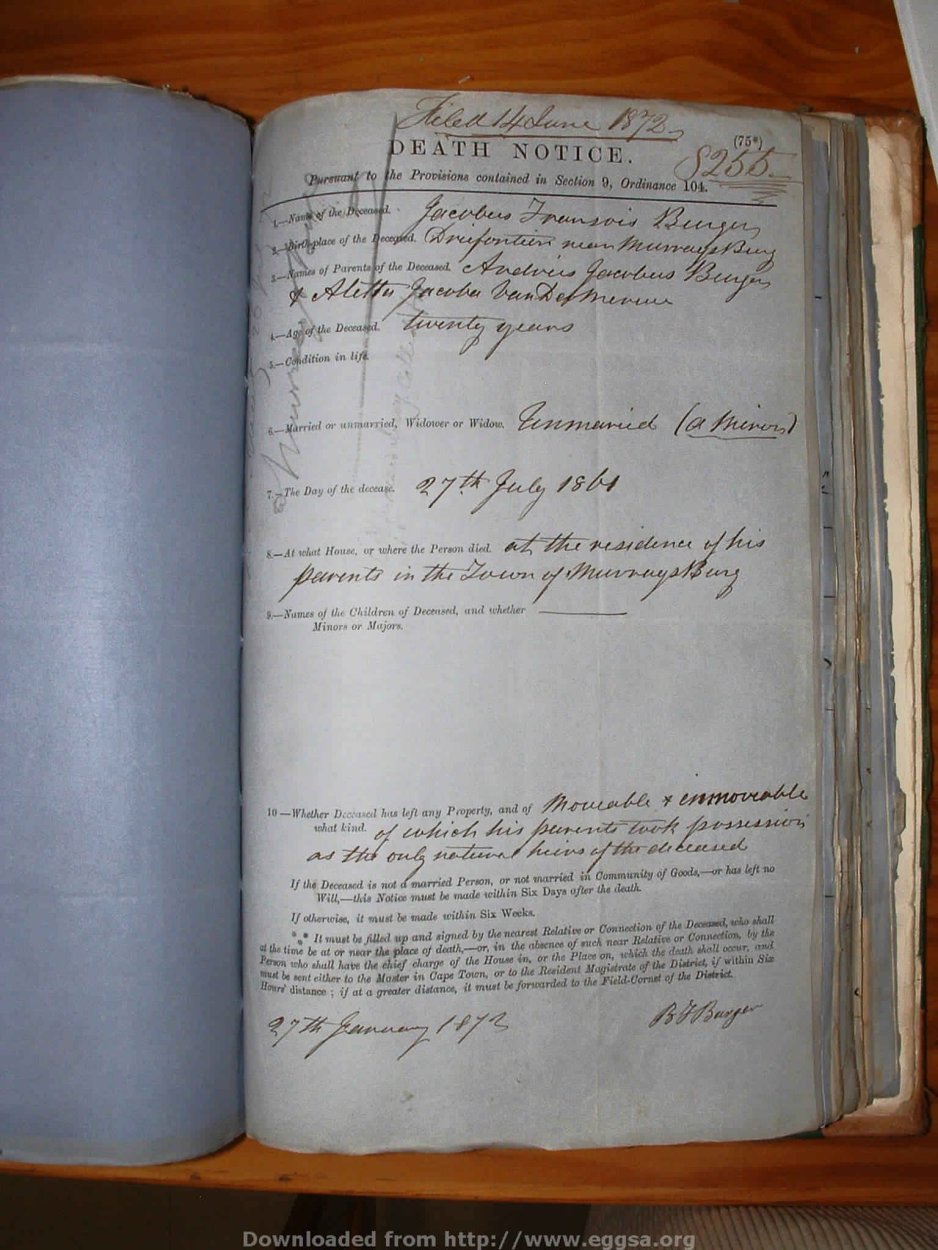 Filed 14 June 1872
(75*)
DEATH NOTICE.
8255.
Pursuant to the Provisions contained in Section 9, Ordinance 104.
1.—Name of the Deceased. Jacobus Fransois Burger
2.—Birth-place of the Deceased. Driefontein near MurraysBurg
3.—Names of Parents of the Deceased. Andries Jacobus Burger
& Aletta Jacoba Van Der Merwe
4.—Age of the Deceased. twenty years
5.—Condition in life.
6.—Married or unmarried, Widower or Widow. Unmaried (a Minor)
7.—The Day of the decease. 27th July 1861
8.—At what House, or where the Person died. at the residence of his
parents in the Town of MurraysBurg
9.—Names of the Children of Deceased, and whether
Minors or Majors.
10—Whether Deceased has left any Property, and of Moveable & immoveable
what kind. of which his parents took possession
as the only natural heirs of the deceased
If the Deceased is not a married Person, or not married in Community of Goods,—or has left no
Will,—this Notice must be made within Six Days after the death.
If otherwise, it must be made within Six Weeks.
*** It must be filled up and signed by the nearest Relative or Connection of the Deceased, who shall
at the time be at or near the place of death,—or, in the absence of such near Relative or Connection, by the
Person who shall have the chief charge of the House in, or the Place on, which the death shall occur, and
must be sent either to the Master in Cape Town, or to the Resident Magistrate of the District, if within Six
Hours' distance; if at a greater distance, it must be forwarded to the Field-Cornet of the District.
27th January 1872
B F Burger
Downloaded from http://www.eggsa.org